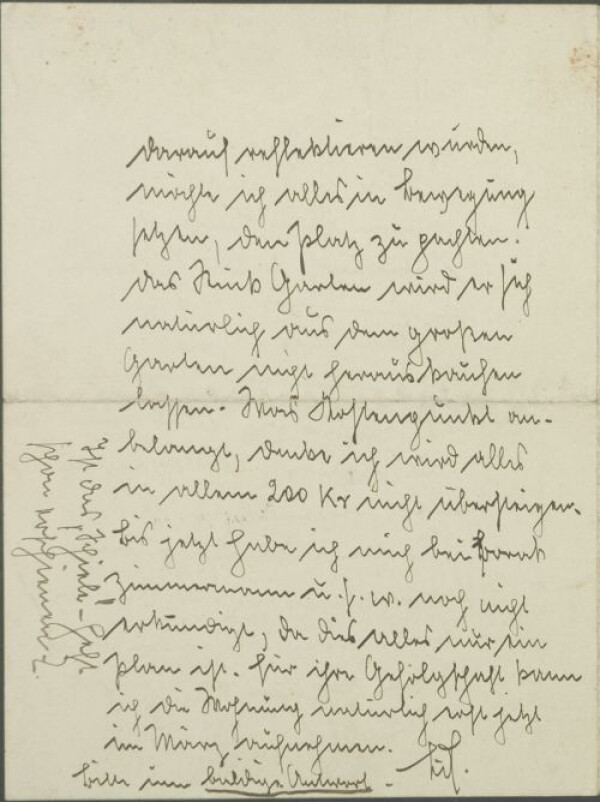 darauf reflektieren würden,
möchte ich alles in bewegung
setzen, den Platz zu pachten.
das Stück Garten wird er sich
natürlich aus dem großen
Garten nicht herauskaufen
lassen. Was Kostenpunkt an-
belangt, denke ich wird alles
in allem 200 Kr nicht übersteigen.
bis jetzt habe ich mich bei
Zimmermann u. s. w. noch nicht
erkundigt, da dies alles nur ein
Plan ist. Für ihre Gefolgschaft kann
ich die Wohnung natürlich erst jetzt
im März aufnehmen.
bitte um baldige Antwort.
Ist das "Schiele-Heft"
schon erschienen?